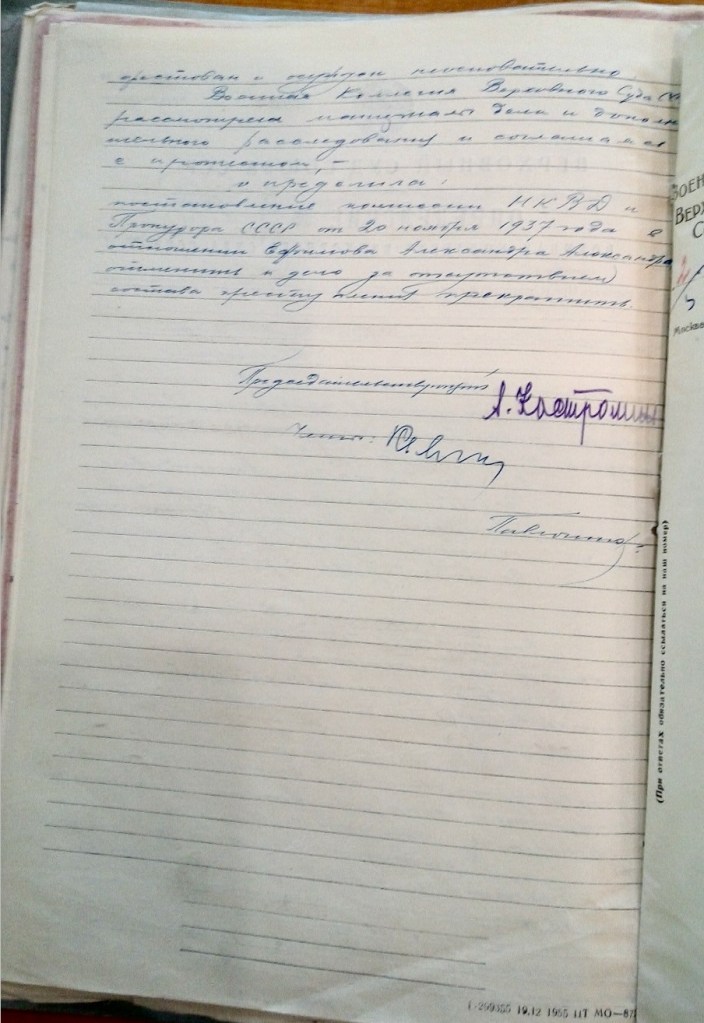 арестован и осужден неосновательно.
Военная Коллегия Верховного Суда СС
рассмотрела материалы дела и дополни
тельного расследования и соглашаясь
с протестом, –
определила:
постановление комиссии НКВД и
Прокурора СССР от 20 ноября 1937 года в
отношении Ефимова Александра Александра
отменить и дело за отсутствием
состава преступления прекратить.
Председательствующий А. Костромин
Члены:
ВОЕН
ВЕРХ
С
Москва
(При ответах обязательно ссылаться на наш номер)
Г-299355 19.12 1955 ЦТ МО—67